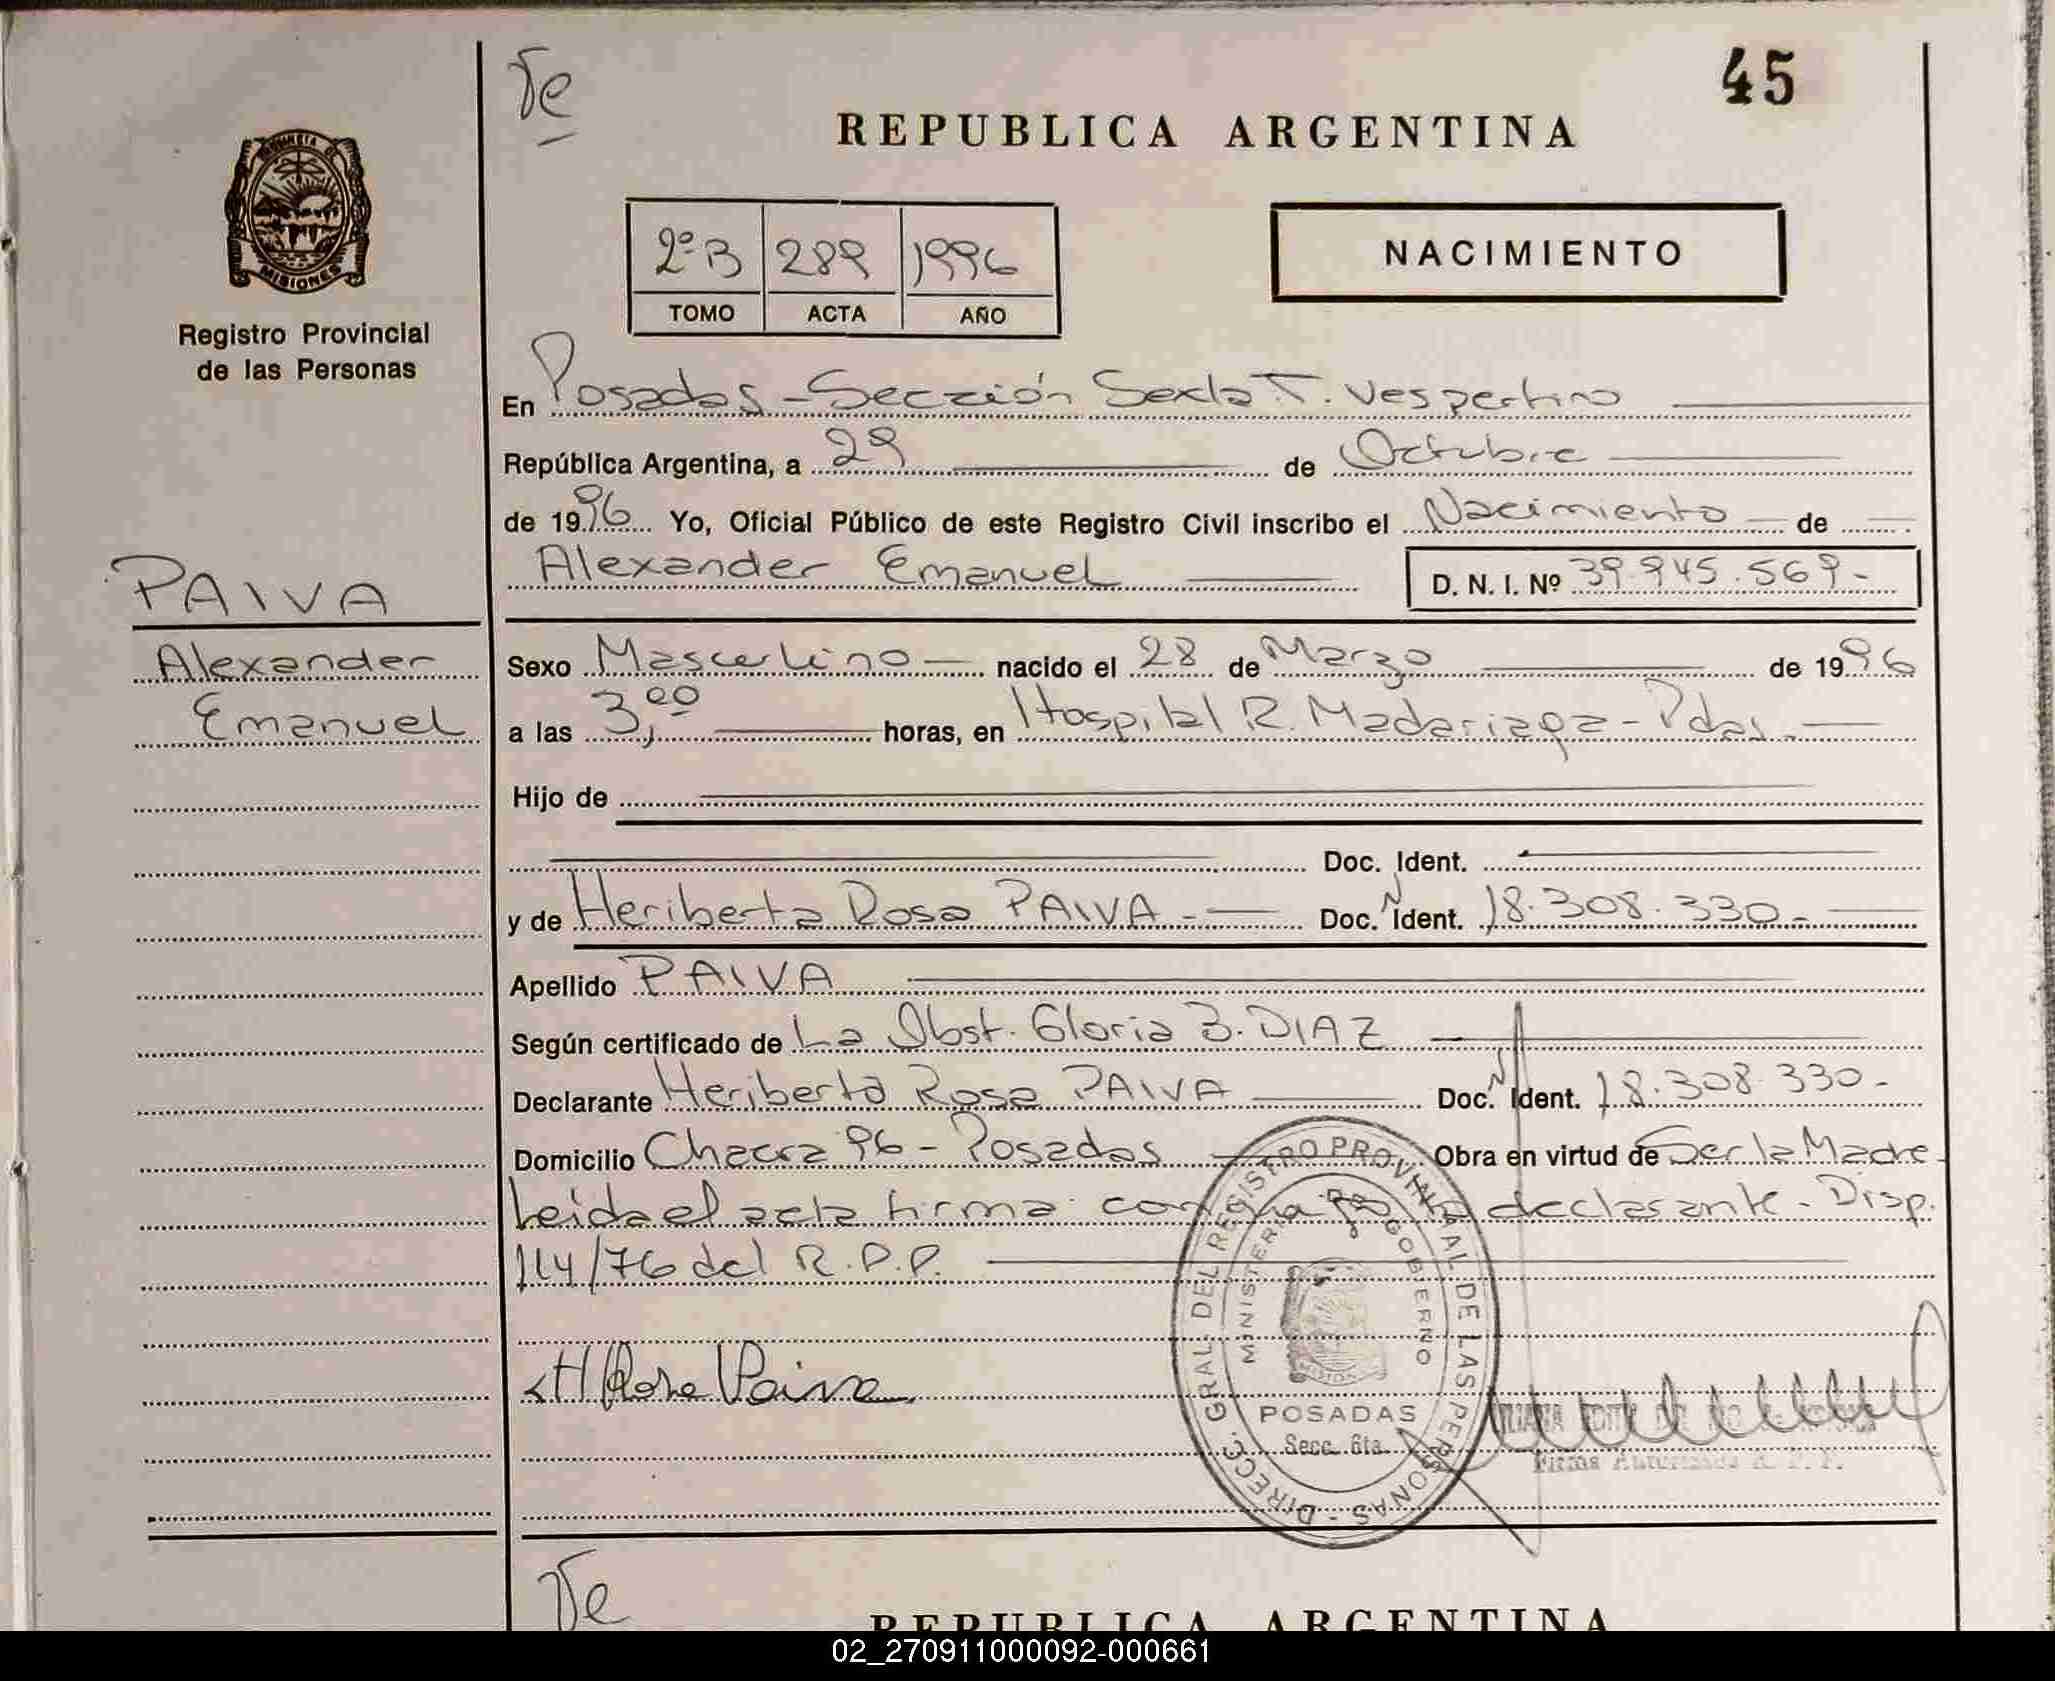 Te
45
REPUBLICA ARGENTINA
MISIONES
Registro Provincial
de las Personas
2º B 289 1996
TOMO ACTA AÑO
NACIMIENTO
En Posadas - Sección Sexta T. Vespertino
República Argentina, a 29 de Octubre
de 1996 Yo, Oficial Público de este Registro Civil inscribo el Nacimiento de
Alexander Emanuel D. N. I. Nº 39.945.569.-
PAIVA
Alexander
Emanuel
Sexo Masculino nacido el 28 de Marzo de 1996
a las 3,00 horas, en Hospital R. Madariaga - Pdas.-
Hijo de
Doc. Ident.
y de Heriberta Rosa PAIVA.- Doc. Ident. 18.308.330.-
Apellido PAIVA
Según certificado de La Obst. Gloria B. DIAZ
Declarante Heriberta Rosa PAIVA Doc. Ident. 18.308.330.-
Domicilio Chacra 96 - Posadas Obra en virtud de Ser la Madre
Leida el acta firma conmigo la declarante.- Disp.
114/76 del R.P.P.
H Rosa Paiva
DIRECC. GRAL. DEL REGISTRO PROVINCIAL DE LAS PERSONAS
MINISTERIO DE GOBIERNO
POSADAS
Secc. 6ta.
Firma Autorizada R. P. P.
Te
REPUBLICA ARGENTINA
02_270911000092-000661